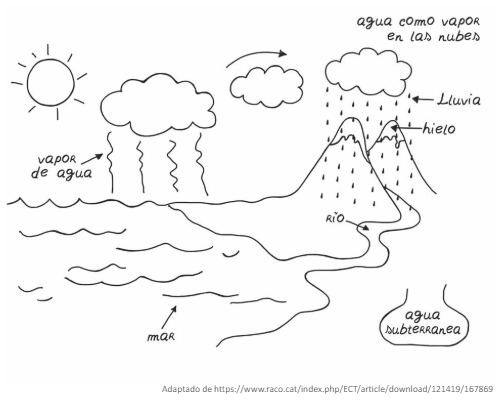 agua como vapor
en las nubes
Lluvia
hielo
vapor
de agua
RÍO
agua
subterranea
mar
Adaptado de https://www.raco.cat/index.php/ECT/article/download/121419/167869